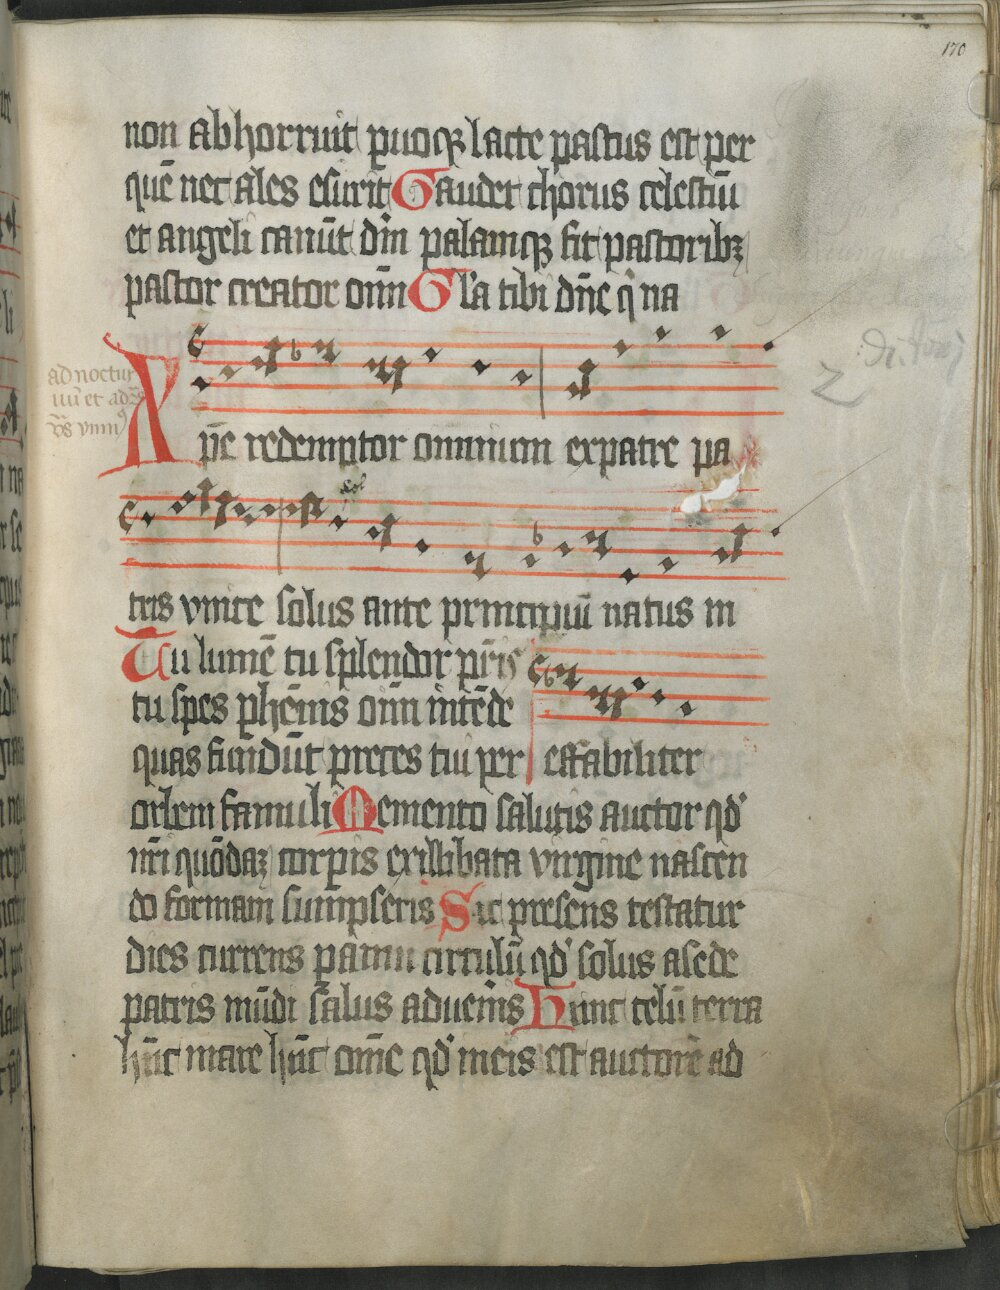 170
non abhorruit paruoqꝫ lacte pastus est per
quē nec ales esurit Gaudet chorus celestiū
et angeli canūt dn̄m palamqꝫ fit pastoribꝫ
pastor creator om̄n Gl'a tibi dn̄e qi na
ad noctur
Xpē redemptor omnium expatre pa
tris vnice solus ante principiū natus in
Tu lumē tu splendor pr̄is
tu spes phēnis om̄n intēde
quas fundūt preces tui per effabiliter
orbem famuli Memento salutis auctor qd'
nr̄i quōdaꝫ corpis exillibata virgine nascen
do formam sumpseris Sic presens testatur
dies currens p anni circulū qd' solus asede
patris mūdi salus adueneris Hunc celū terra
hūc mare hūc om̄e qd' in eis est auctorē ad